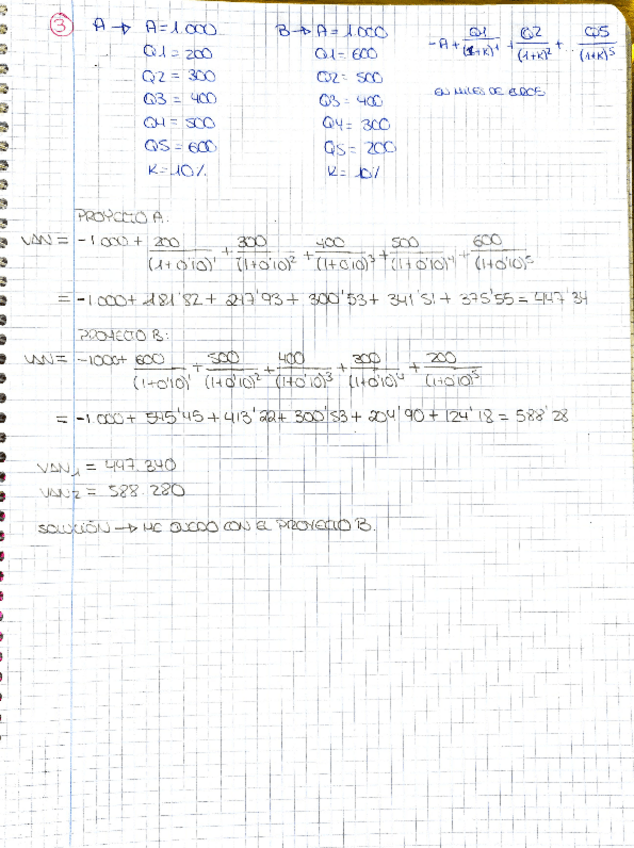 ③ A → A = 1.000 B → A = 1.000 -A + Q1/(1+K)¹ + Q2/(1+K)² + .. Q5/(1+K)⁵
Q1 = 200 Q1 = 600
Q2 = 300 Q2 = 500 EN MILES DE EUROS
Q3 = 400 Q3 = 400
Q4 = 500 Q4 = 300
Q5 = 600 Q5 = 200
K = 10% K = 10%
PROYECTO A:
VAN = -1.000 + 200/(1+0'10)¹ + 300/(1+0'10)² + 400/(1+0'10)³ + 500/(1+0'10)⁴ + 600/(1+0'10)⁵
= -1.000 + 181'82 + 247'93 + 300'53 + 341'51 + 375'55 = 447'34
PROYECTO B:
VAN = -1000 + 600/(1+0'10)¹ + 500/(1+0'10)² + 400/(1+0'10)³ + 300/(1+0'10)⁴ + 200/(1+0'10)⁵
= -1.000 + 545'45 + 413'22 + 300'53 + 204'90 + 124'18 = 588'28
VAN₁ = 447.340
VAN₂ = 588.280
SOLUCIÓN → ME QUEDO CON EL PROYECTO B.